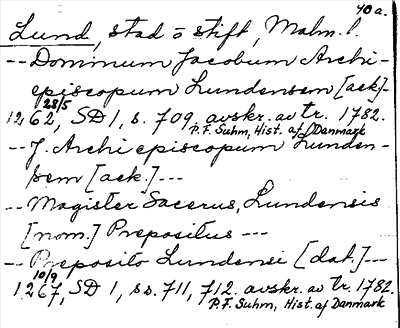 40a.
Lund, stad o stift, Malm. l.
-- Dominum Jacobum Archi-
episcopum Lundensem [ack]-
28/5
1262, SD 1, s. 709, avskr. av tr. 1782.
P.F. Suhm, Hist. af Danmark
-- J. Archiepiscopum Lunden-
sem [ack.] ---
-- Magister Sacerus, Lundensis
[nom.] Prepositus ---
-- Preposito Lundensi [dat.] ---
10/9
1267, SD 1, ss. 711, 712. avskr. av tr. 1782.
P.F. Suhm, Hist. af Danmark